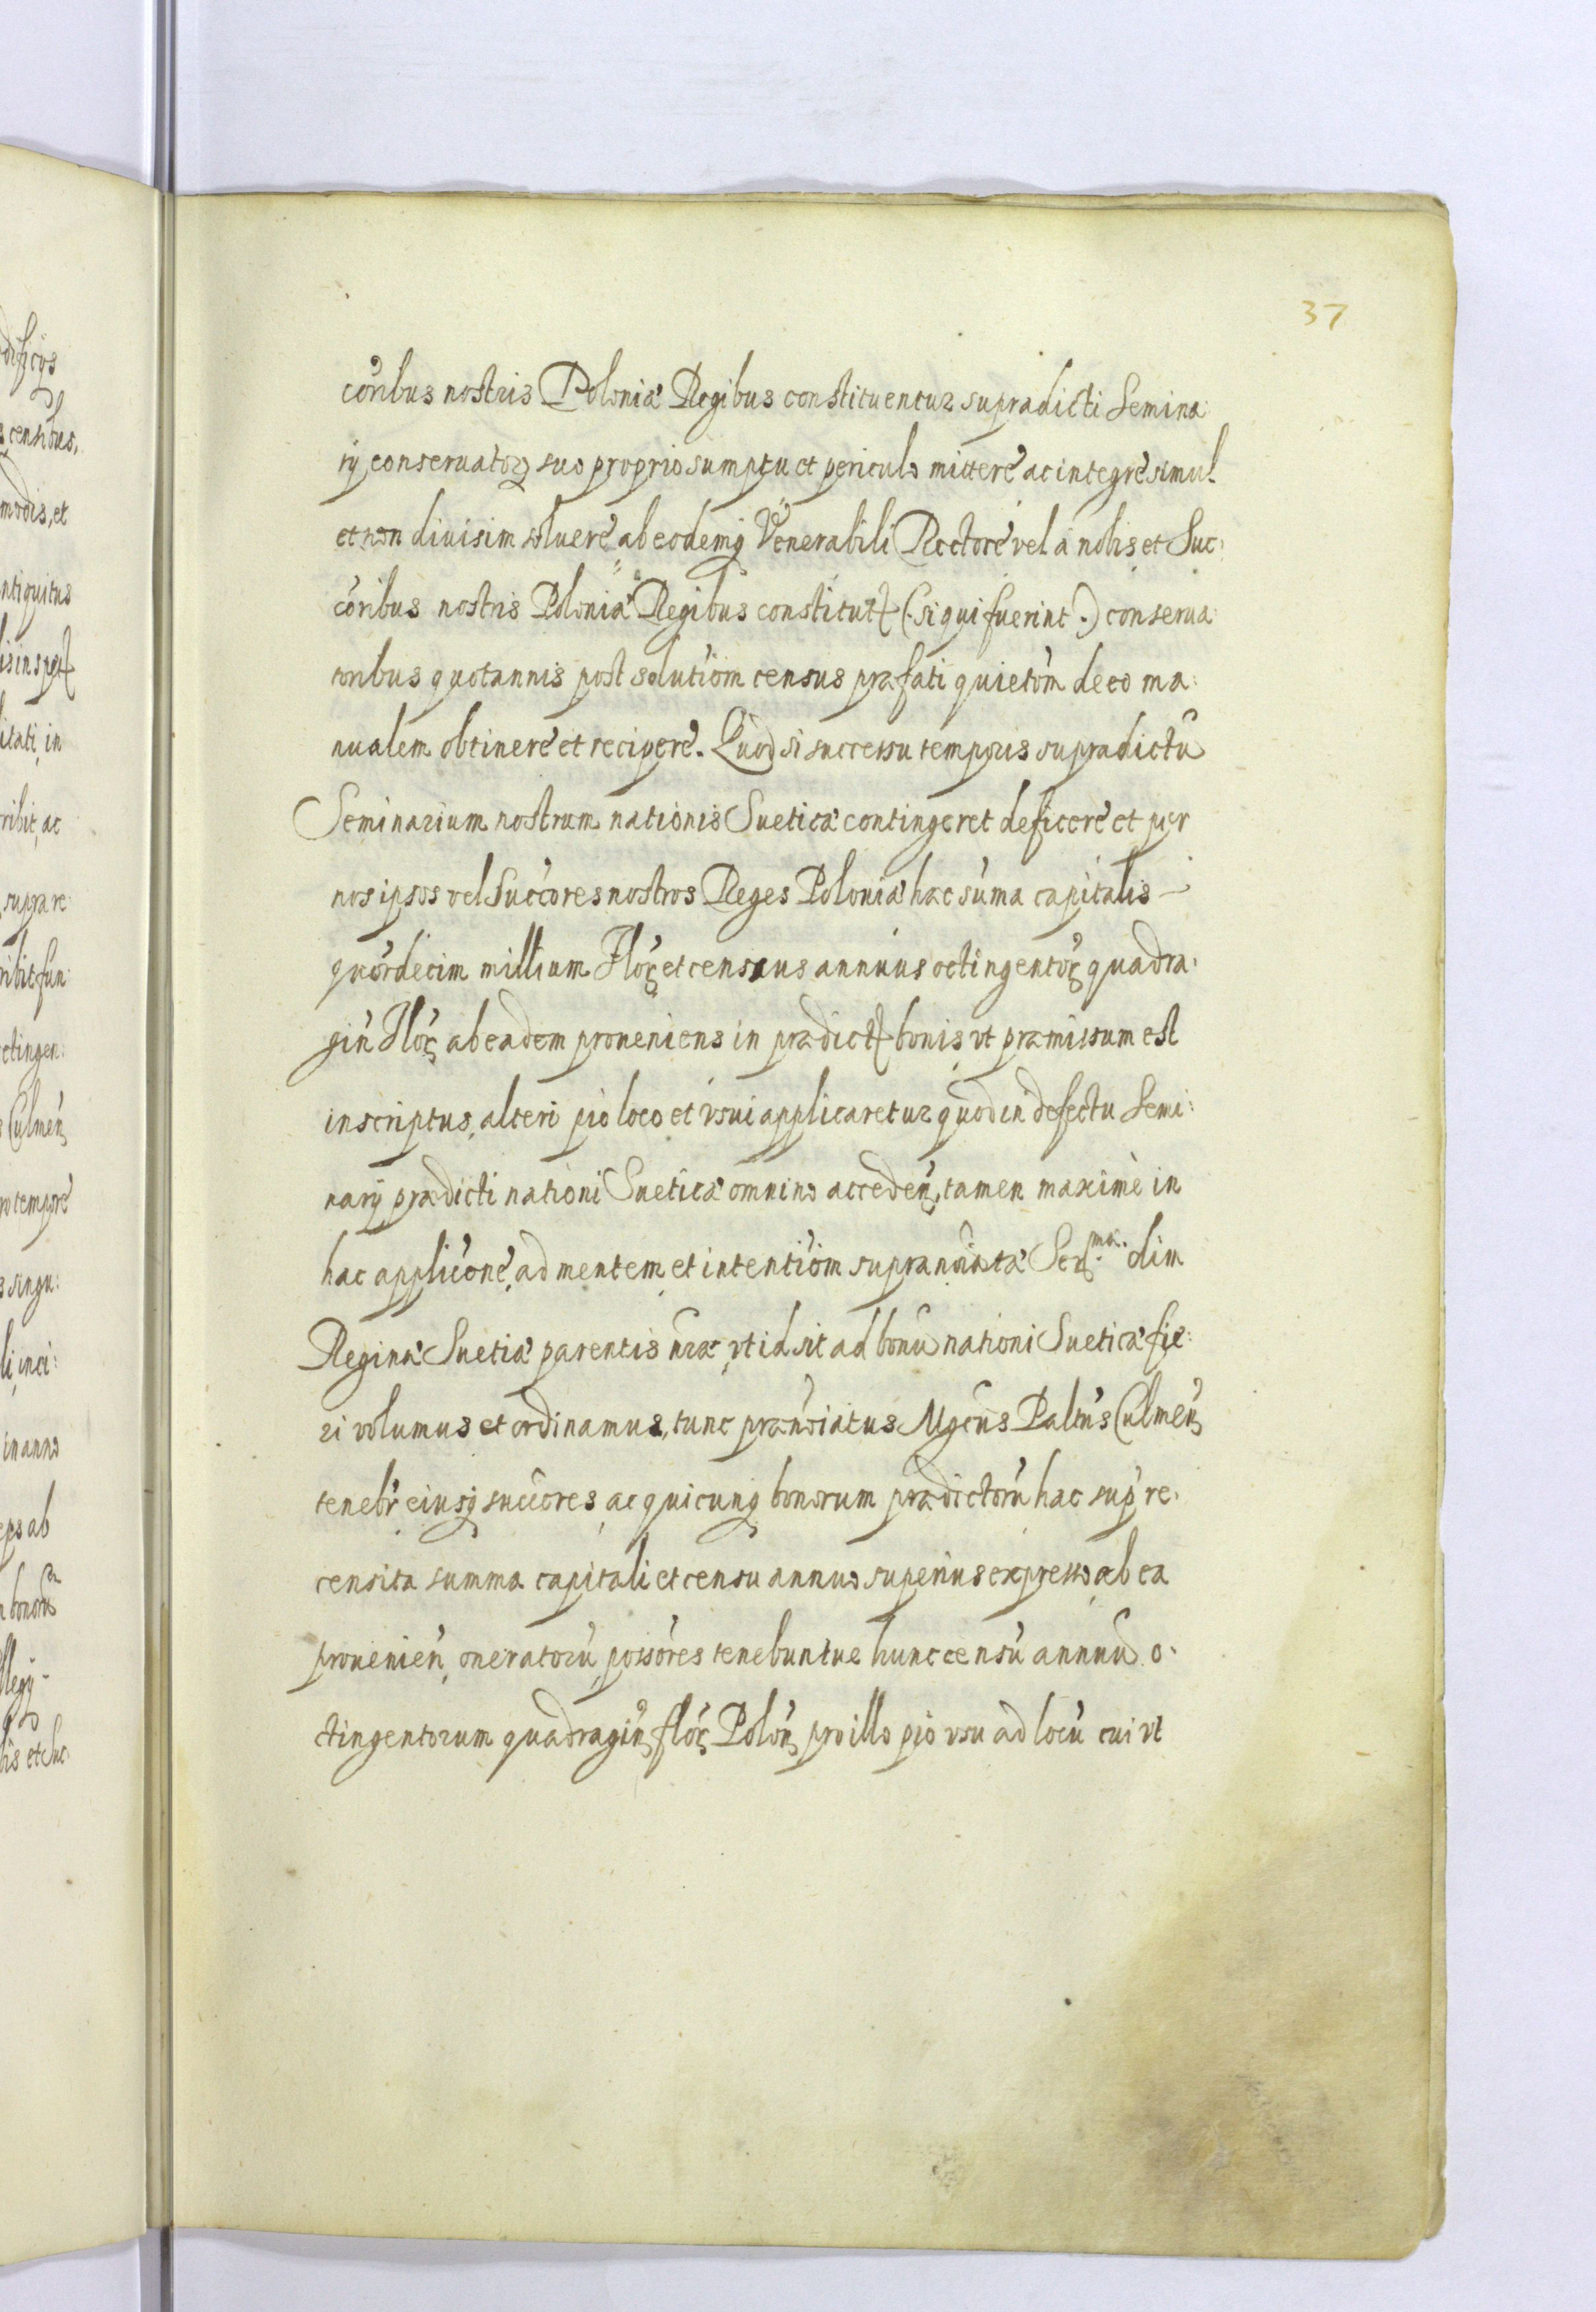 37
cor̃ibus nostris Poloniæ Regibus constituentur supradicti Semina:
rij conseruator suo proprio sumptu et periculo mittere ac integre simul
et non diuisim soluere ab eodemq̃ Venerabili Rectore vel à nobis et Suc:
cor̃ibus nostris Poloniæ Regibus constitut (·si qui fuerint·) conserua:
toribus quotannis post solutiom census præfati quietom de eo ma:
nualem obtinere et recipere. Quod si successu temporis supradictũ
Seminarium nostrum nationis Sueticæ contingeret deficere et per
nos ipsos vel Succores nostros Reges Poloniæ hæc suma capitalis —
quordecim millium Floȓ et census annuus octingentoȓ quadra:
gin Floȓ ab eadem proueniens in prædict bonis vt præmissum est
inscriptus, alteri pio loco et vsui applicaretur quod in defectu Semi:
narij prædicti nationi Sueticæ omnino acceden, tamen maximè in
hac applicone, ad mentem et intentiom supranoĩatæ Ser.ma olim
Reginæ Suetiæ parentis nr̃æ vt id sit ad bonũ nationi Sueticæ fie:
ri volumus et ordinamus, tunc prænoĩatus Mgcus Paltus Culmen
tenebr eiusq̃ succores ac quicunq̃ bonorum prædictorũ hac supr re:
censita summa capitali et censu annuo superius expresso ab ea
prouenien oneratorũ possores tenebuntur hunc censũ annuũ o:
ctingentorum quadragin floȓ Polon pro illo pio vsu ad locũ cui vt